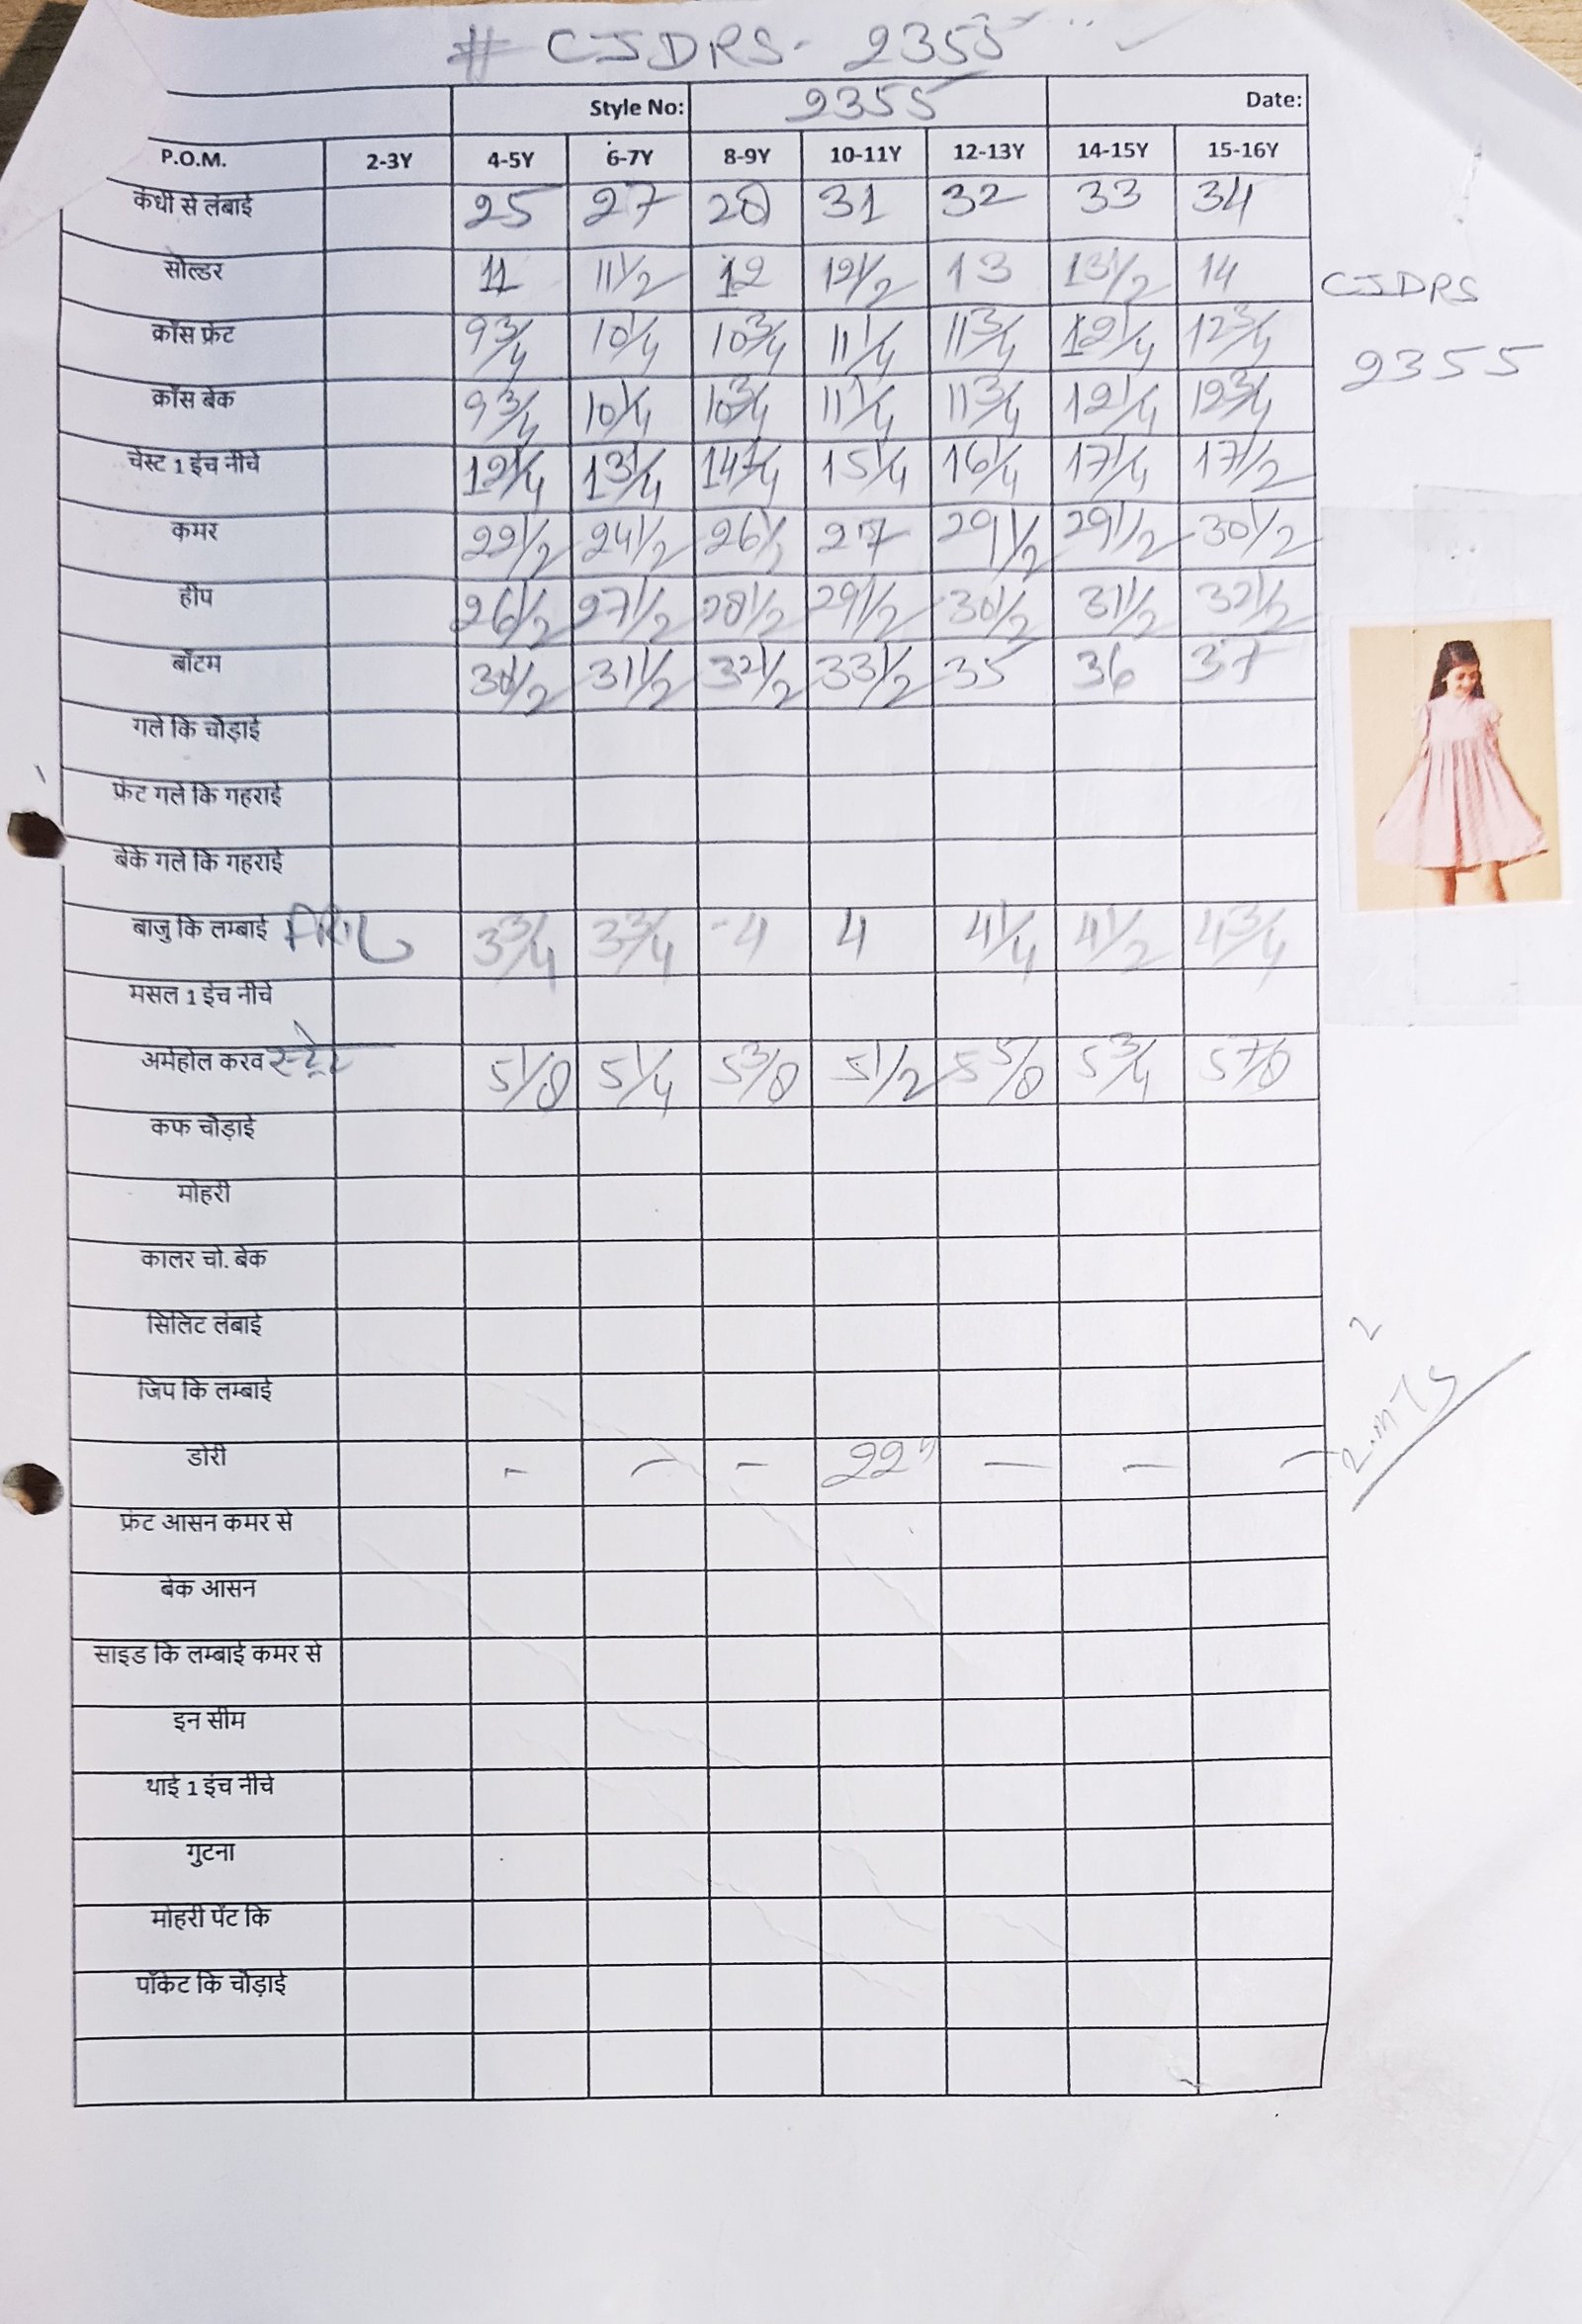 # CJDRS- 2355
Style No: 2355 Date:
P.O.M. 2-3Y 4-5Y 6-7Y 8-9Y 10-11Y 12-13Y 14-15Y 15-16Y
कंधी से लंबाई 25 27 28 31 32 33 34
सोल्डर 11 11 1/2 12 12 1/2 13 13 1/2 14
CJDRS
क्रॉस फ्रंट 9 3/4 10 1/4 10 3/4 11 1/4 11 3/4 12 1/4 12 3/4
2355
क्रॉस बेक 9 3/4 10 1/4 10 3/4 11 1/4 11 3/4 12 1/4 12 3/4
चेस्ट 1 इंच नीचे 12 1/4 13 1/4 14 1/4 15 1/4 16 1/4 17 1/4 17 1/2
कमर 22 1/2 24 1/2 26 1/2 27 29 1/2 29 1/2 30 1/2
हीप 26 1/2 27 1/2 28 1/2 29 1/2 30 1/2 31 1/2 32 1/2
बॉटम 30 1/2 31 1/2 32 1/2 33 1/2 35 36 37
गले कि चौड़ाई
फ्रंट गले कि गहराई
बेक गले कि गहराई
बाजु कि लम्बाई 3 3/4 3 3/4 4 4 4 1/4 4 1/2 4 3/4
मसल 1 इंच नीचे
अर्महोल करव स्ट्रेट 5 1/8 5 1/4 5 3/8 5 1/2 5 5/8 5 3/4 5 7/8
कफ चौड़ाई
मोहरी
कालर चो. बेक
सिलिट लंबाई
जिप कि लम्बाई
डोरी - - - 22" - - -
फ्रंट आसन कमर से
बेक आसन
साइड कि लम्बाई कमर से
इन सीम
थाई 1 इंच नीचे
गुटना
मोहरी पेंट कि
पॉकेट कि चौड़ाई